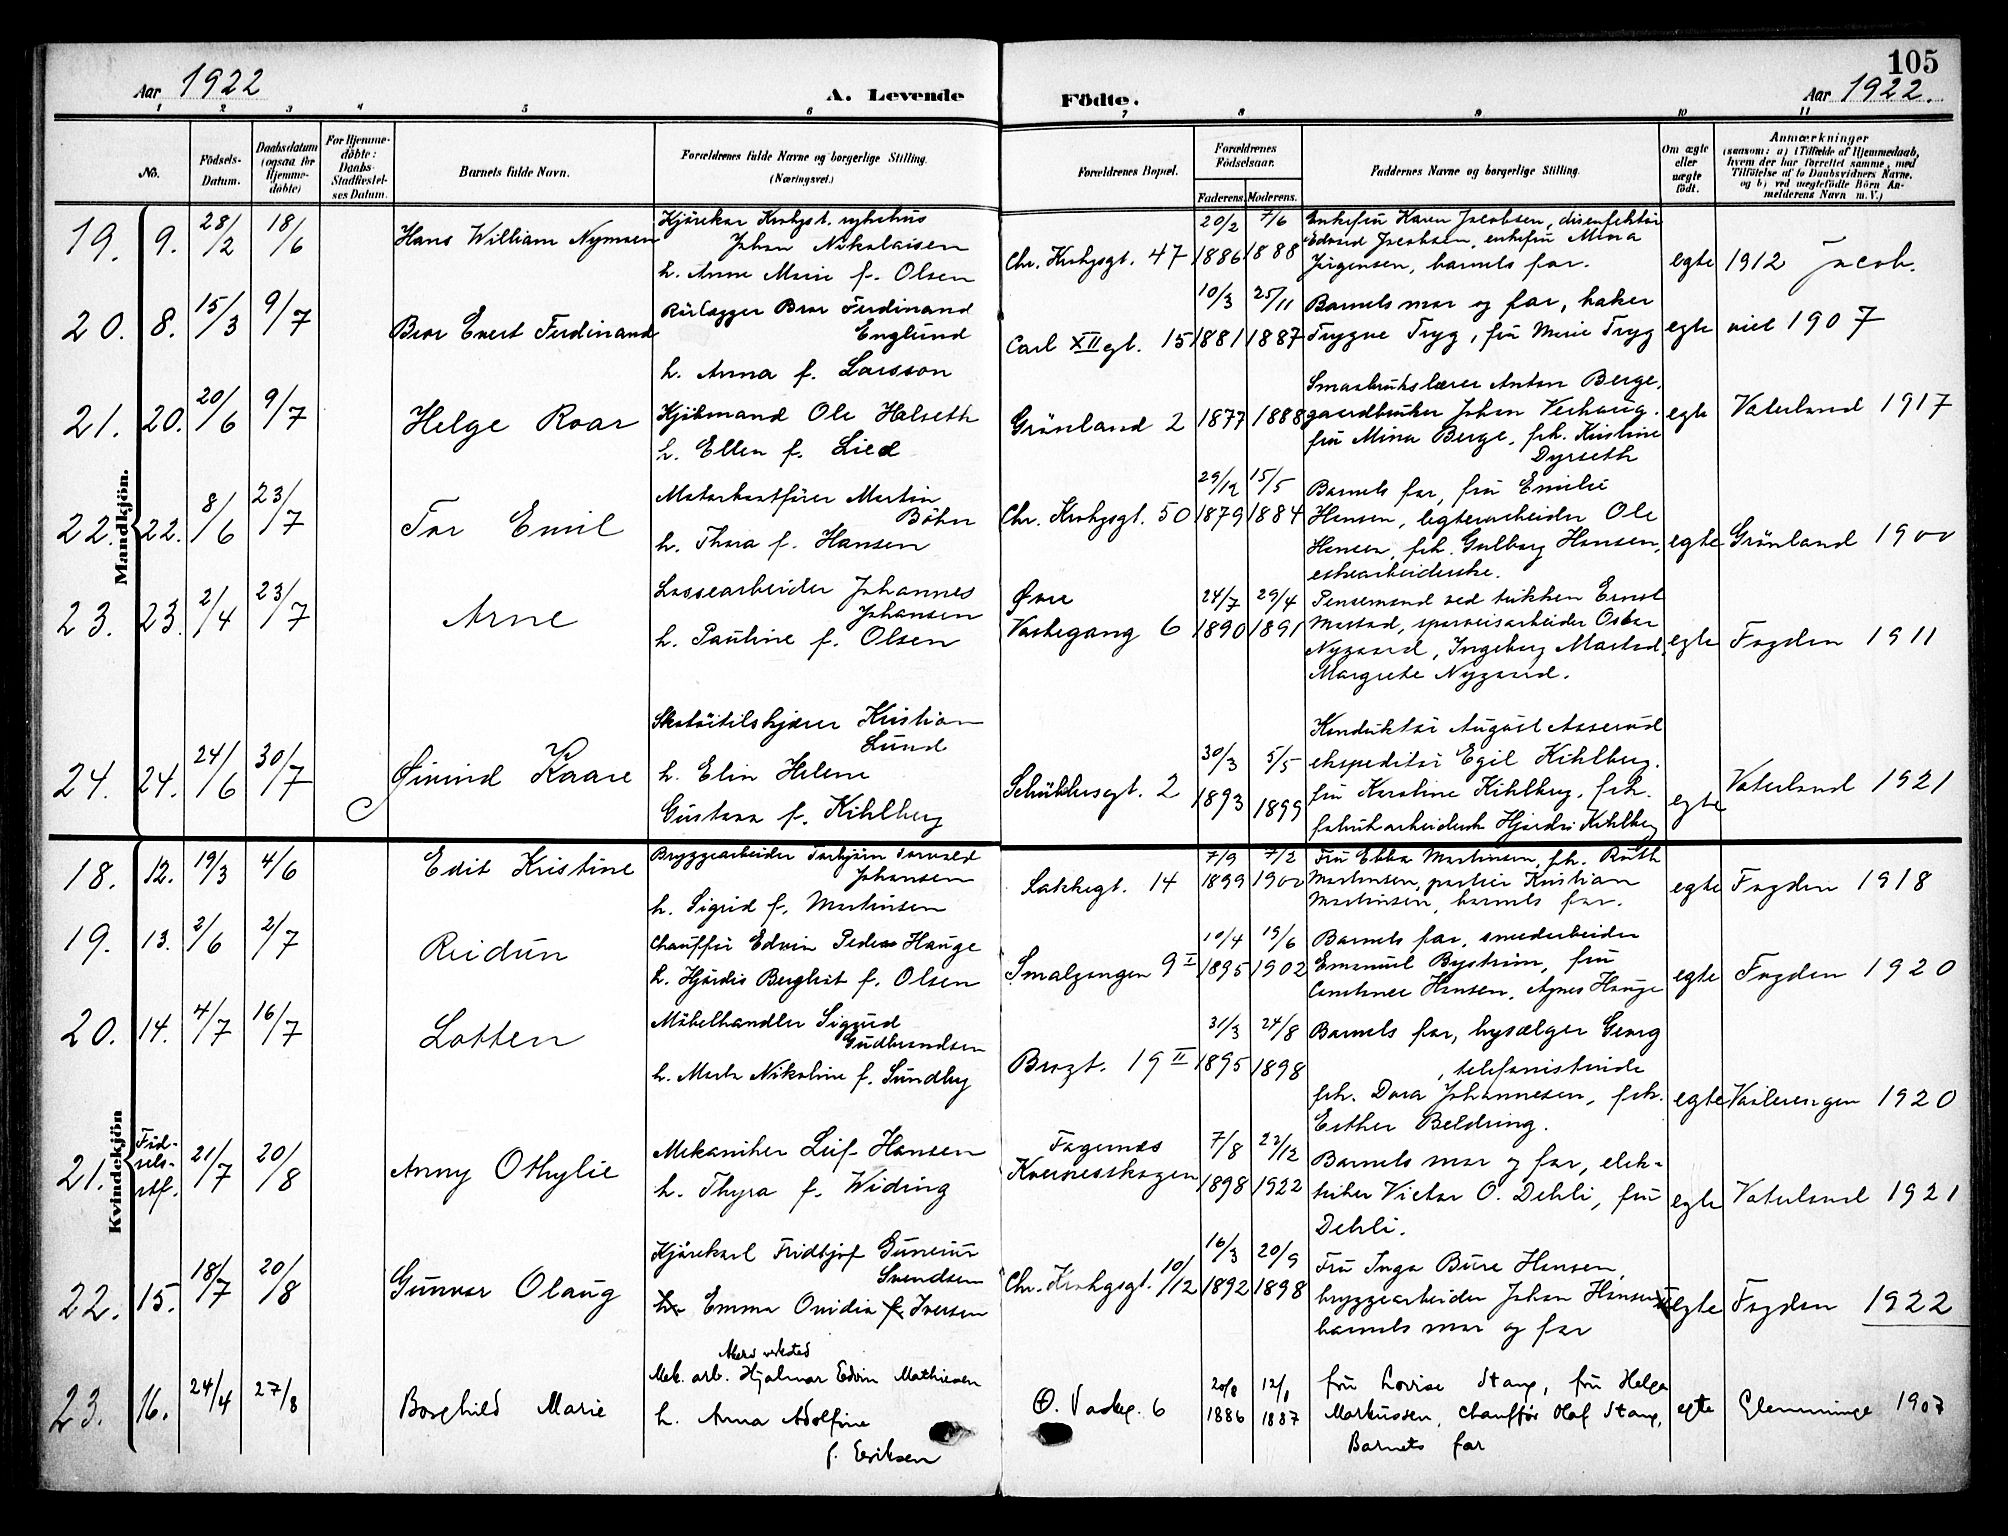 105
Aar 1922
A. Levende
Födte.
Aar 1922.
1 2 3 4 5 6 7 8 9 10 11
No.
Födsels-
Datum.
Daabsdatum
(ogsaa for
Hjemme-
döbte)
For Hjemme-
döbte:
Daabs-
Stadfæstel-
ses Datum.
Barnets fulde Navn.
Forældrenes fulde Navne og borgerlige Stilling.
(Næringsvei.)
Forældrenes Bopæl.
Forældrenes
Födselsaar.
Faderens. Moderens.
Faddernes Navne og borgerlige Stilling.
Om ægte
eller
uægte
födt.
Anmærkninger
(saasom: a) i Tilfælde af Hjemmedaab,
hvem der har forrettet samme, med
Tilföielse af to Daabsvidners Navne.
og b) ved uægtefödte Börn An-
melderens Navn m. V.)
Mandkjön.
19. 9. 28/2 18/6
Hans William Nymoen
Kjörekar Krohgst. sykehus
Johan Nikolaisen
h. Anne Marie f. Olsen
Chr. Krohgsgt. 47
20/2 1886
7/6 1888
Enkefru Karen Jacobsen, disenfektör
Edvard Jacobsen, enkefru Mina
Jörgensen, barnets far.
egte
1912 Jacob.
20. 8. 15/3 9/7
Bror Evert Ferdinand
Rörlægger Bror Ferdinand
Englund
h. Anna f. Larsson
Carl XII gt. 15
10/3 1881
25/11 1887
Barnets mor og far, baker
Trygve Tryg, fru Marie Tryg
egte
viet 1907
21. 20. 20/6 9/7
Helge Roar
Kjöbmand Ole Halseth
h. Ellen f. Lied
Grönland 2
1877
1888
Smaabrukslærer Anton Berge,
gaardbruker Johan Verhaug.
fru Mina Berge, frk. Kristine
Dyrseth
egte
Vaterland 1917
22. 22. 8/6 23/7
Tor Emil
Motorbaatförer Martin
Böhn
h. Thora f. Hansen
Chr. Krohgsgt. 50
29/12 1879
15/5 1884
Barnets far, fru Emilie
Hansen, lægterarbeider Ole
Hansen, frk. Gulborg Hansen,
eskearbeiderske.
egte
Grönland 1900
23. 23. 2/4 23/7
Arne
Lossearbeider Johannes
Johansen
h. Pauline f. Olsen
Øvre
Vaskegang 6
24/7 1890
29/4 1891
Pensemand ved trikken Ernst
Mastad, sporveisarbeider Oskar
Nygaard, Ingeborg Mastad,
Margrete Nygaard.
egte
Fagden 1911
24. 24. 24/6 30/7
Øivind Kaare
Skotöitilskjærer Kristian
Lund
h. Elin Helene
Gustava f. Kihlberg
Schüblersgt. 2
30/3 1893
5/5 1899
Konduktör August Aaserud
ekspeditör Egil Kihlberg.
fru Karoline Kihlberg, frk.
fabrikarbeidersk Hjördis Kihlberg
egte
Vaterland 1921
Kvindekjön
18. 12. 19/3 4/6
Edit Kristine
Bryggearbeider Torbjörn Torvald
Johansen
h. Sigrid f. Martinsen
Lakkegt. 14
7/9 1899
7/2 1900
Fru Ebba Martinsen, frk. Ruth
Martinsen, portier Kristian
Martinsen, barnets far.
egte
Fagden 1918
19. 13. 2/6 2/7
Reidun
Chaufför Edvin Peder Hauge
h. Hjördis Bergliot f. Olsen
Smalgangen 9 I
10/4 1895
19/6 1902
Barnets far, smedarbeider
Emanuel Byström, fru
Hansen, Agnes Hauge
egte
Fagden 1920
20. 14. 4/7 16/7
Lotten
Möbelhandler Sigurd
Gudbrandsen
h. Marta Nikoline f. Sundby
Brogt. 19 II
31/3 1895
24/8 1898
Barnets far, bysælger Georg
, telefonistinde
frk. Dora Johannesen, frk.
Esther Beldring.
egte
Vaalerengen 1920
21. Föd-
sels-
stf. 21/7 20/8
Anny Othylie
Mekaniker Leif Hansen
h. Thyra f. Widing
Fagernes
Kvernesskogen
7/8 1898
22/12 1922
Barnets mor og far, elek-
triker Victor O. Dehli, fru
Dehli.
egte
Vaterland 1921
22. 15. 18/7 20/8
Gunvor Olaug
Kjörekarl Fridtjof Gunerius
Svendsen
h. Emma Ovidia f. Iversen
Chr. Krohgsgt. 10/12
16/3 1892
20/9 1898
Fru Inga Bure Hansen,
bryggearbeider Johan Hansen
barnets mor og far
egte
Fagden 1922
23. 16. 24/4 27/8
Borghild Marie
Akers verksted
Mek. arb. Hjalmar Edvin Mathiesen
h. Anna Adolfine
f. Eriksen
Ø. Vaskeg. 6
20/8 1886
12/1 1887
fru Lovise Stang, fru Helga
Markussen, chaufför Olaf Stang,
Barnets far
egte
Glemminge 1907